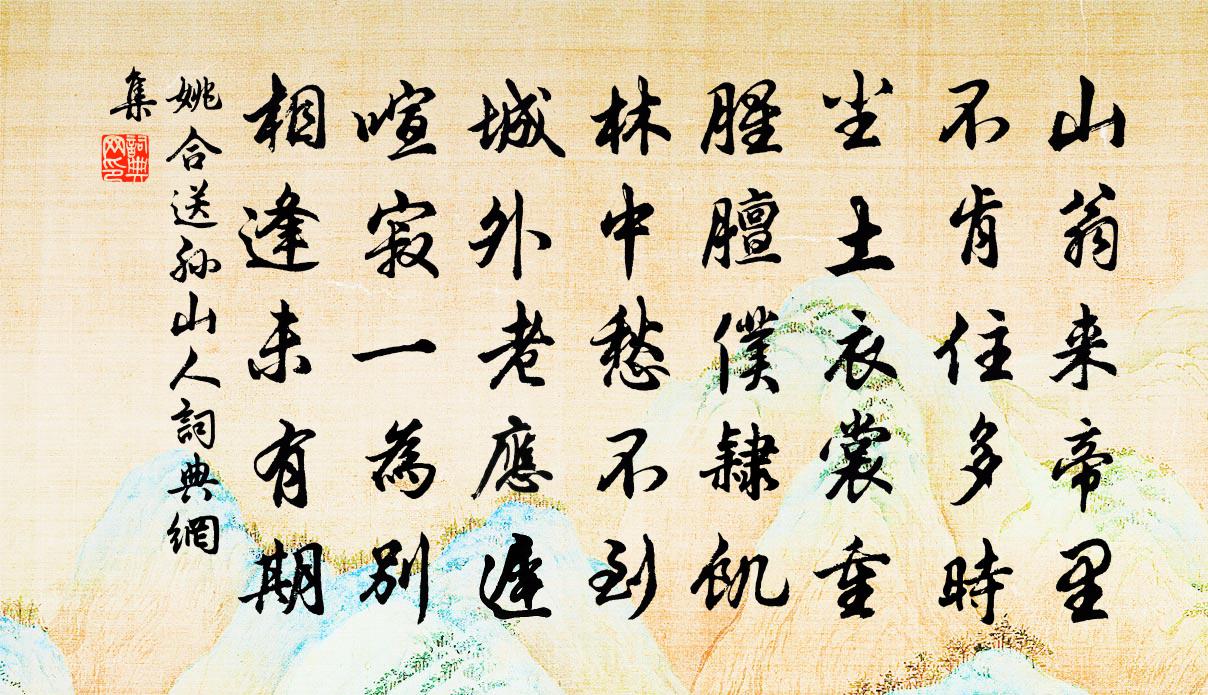 山翁来帝里
不肯住多時
尘土衣裳重
腥膻僕隸飢
林中愁不到
城外老應遲
喧寂一為別
相逢未有期
姚合送孙山人詞典網
集
詞典網印